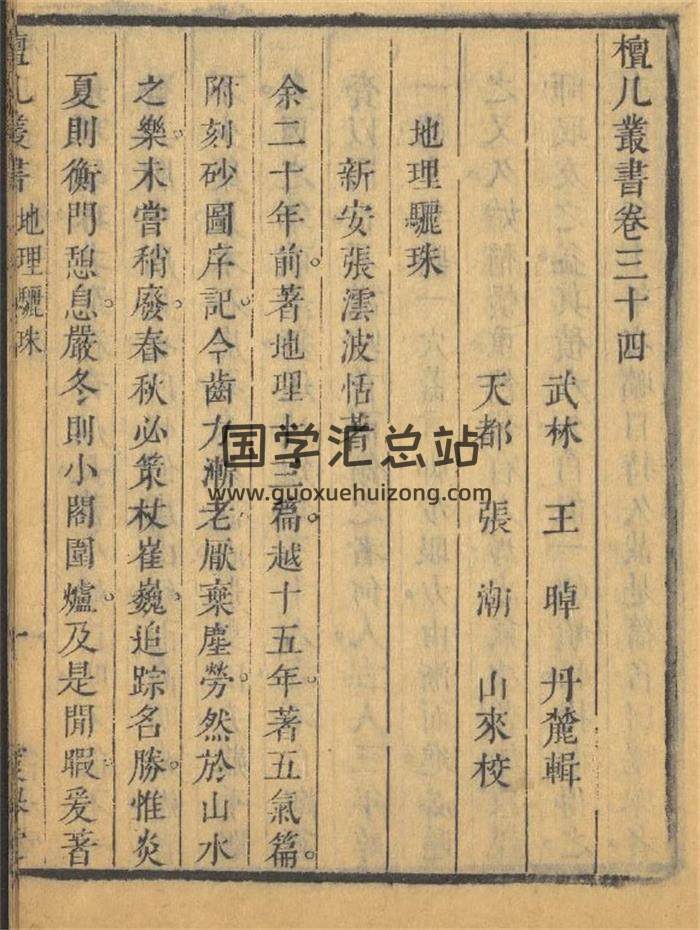 檀几叢書卷三十四
武林 王 晫 丹麓輯
天都 張 潮 山來校
地理驪珠
新安張澐波恬著
余二十年前。著地理十三篇。越十五年。著五氣篇。
附刻砂圖序記。今齒力漸老。厭棄塵勞。然於山水
之樂。未嘗稍廢。春秋必策杖崔巍。追踪名勝。惟炎
夏則衡門憩息。嚴冬則小閣圍爐。及是閒暇。爰著
檀几叢書 地理驪珠 一
国学汇总站
www.guoxuehuizong.com